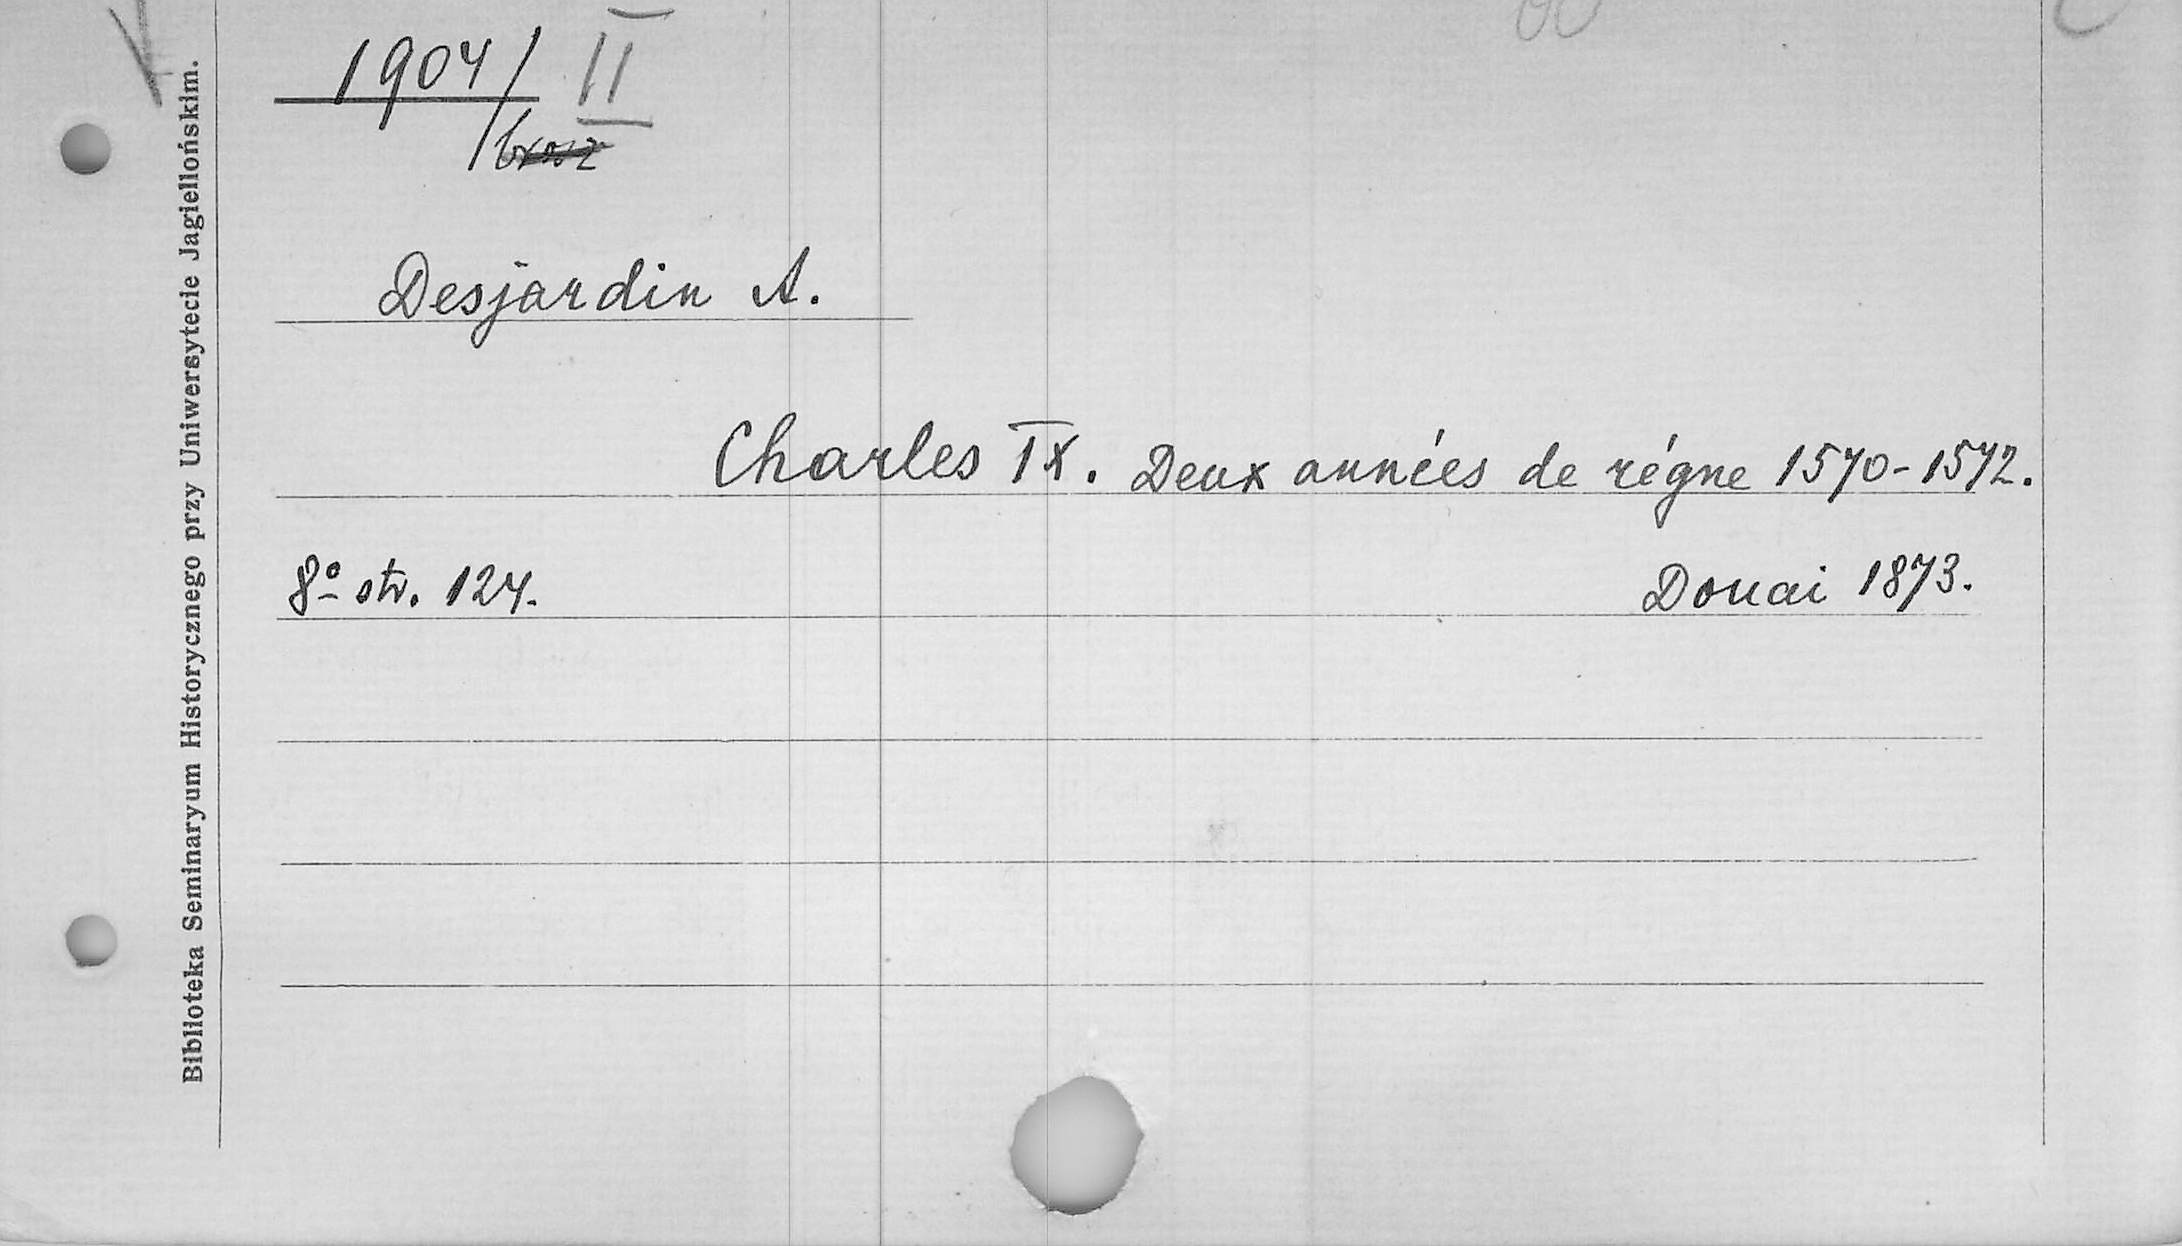 1904/II
brosz
Desjardin A.
Charles IX. Deux années de régne 1570-1572.
8º str. 124.
Douai 1873.
Biblioteka Seminaryum Historycznego przy Uniwersytecie Jagiellońskim.